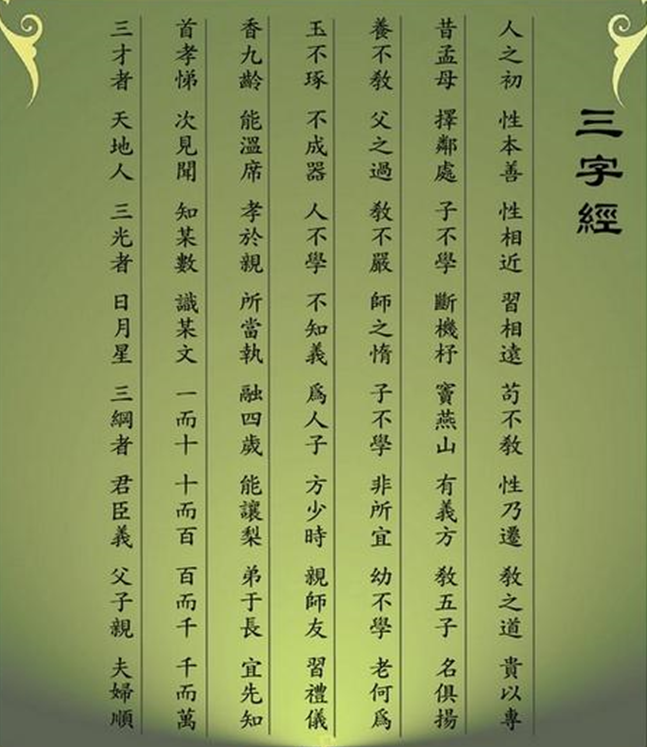 三字經
人之初 性本善 性相近 習相遠 苟不教 性乃遷 教之道 貴以專
昔孟母 擇鄰處 子不學 斷機杼 竇燕山 有義方 教五子 名俱揚
養不教 父之過 教不嚴 師之惰 子不學 非所宜 幼不學 老何為
玉不琢 不成器 人不學 不知義 為人子 方少時 親師友 習禮儀
香九齡 能溫席 孝於親 所當執 融四歲 能讓梨 弟于長 宜先知
首孝悌 次見聞 知某數 識某文 一而十 十而百 百而千 千而萬
三才者 天地人 三光者 日月星 三綱者 君臣義 父子親 夫婦順